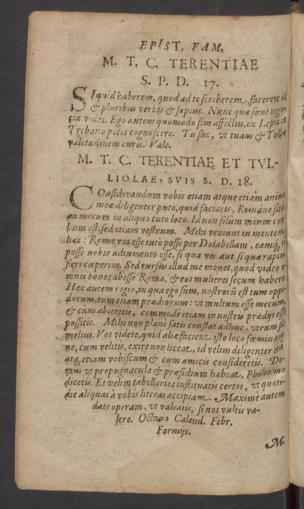 EPIST. FAM.
M. T. C. TERENTIAE
S. P. D. 17.
SI quid haberem, quod ad te scriberem, facerem id
& pluribus verbis & sæpius. Nunc quæ sint nego-
cia vides. Ego autem quomodo sim affectus, ex Lepta et
Trebatio poteris cognoscere. Tu fac, vt tuam & Tulliæ
valetudinem cures. Vale.
M. T. C. TERENTIAE ET TVL-
LIOLAE, SVIS S. D. 18.
COnsiderandum vobis etiam atque etiam animæ
meæ diligenter puto, quid faciatis, Romæne sitis
an mecum in aliquo tuto loco. Id non solùm meum con
sium est, sed etiam vestrum. Mihi veniunt in mentem
hæc: Romæ vos esse tuto posse per Dolabellam, eamq́;
posse nobis adiumento esse, si qua vis aut si quæ rapinæ
fieri cœperint. Sed rursus illud me mouet, quod video o
mnes bonos abesse Roma, & eos mulieres secum habere.
Hæc autem regio, in qua ego sum, nostrorū est tum oppi-
dorum, tum etiam prædiorum: vt multum esse mecum,
& cum abieritis, commodè etiam in nostris prædijs esse
possitis. Mihi non planè satis constat adhuc, vtrum sit
melius. Vos videte, quid aliæ faciant isto loco fœminæ:
ne, cum velitis, exire non liceat. id velim diligenter etiā
atq; etiam vobiscum & cum amicis consideretis. Do-
mus vt propugnacula & præsidium habeat, Philotimo
dicetis. Et velim tabellarios instituatis certos, vt quoti-
die aliquas à vobis literas accipiam. Maximè autem
date operam, vt valeatis, si nos vultis va-
lere. Octauo Calend. Febr.
Formijs.
M.